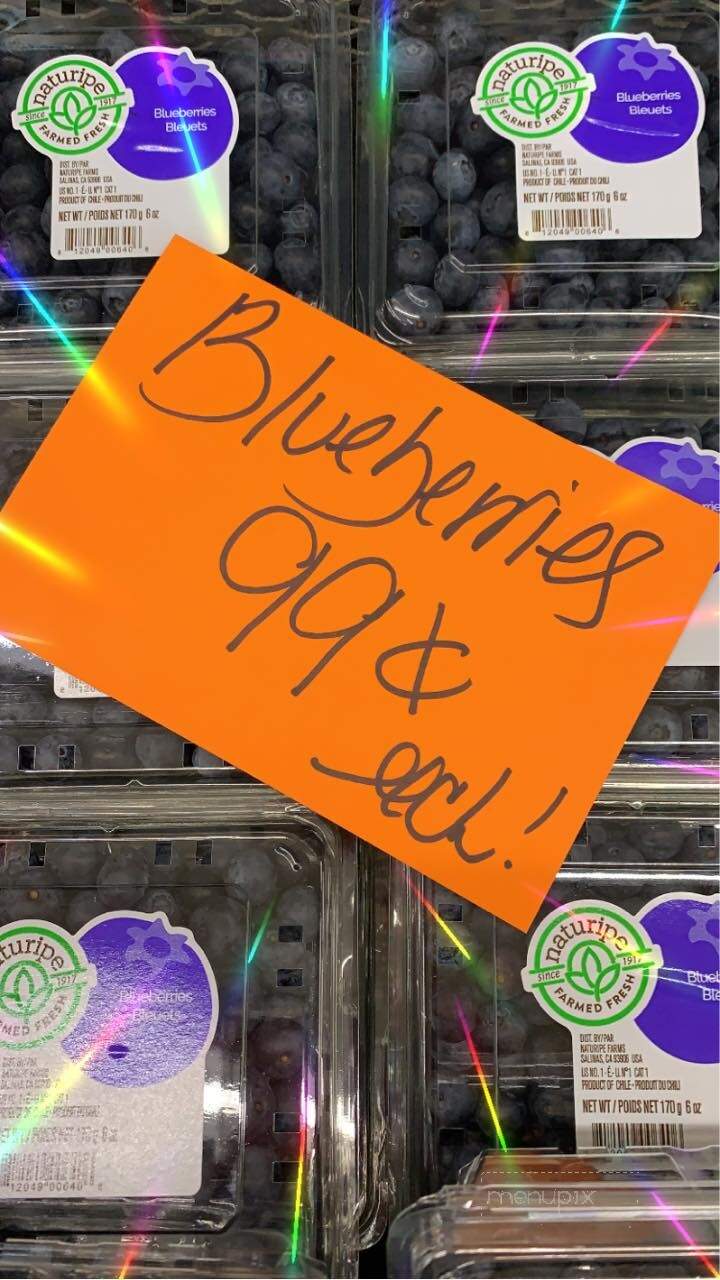 naturipe
since 1917
FARMED FRESH
Blueberries
Bleuets
DIST. BY/PAR
NATURIPE FARMS
SALINAS, CA 93906 USA
US NO. 1 - É.-U. Nº1 CAT 1
PRODUCT OF CHILE • PRODUIT DU CHILI
NET WT / POIDS NET 170 g 6 oz
8 12049 00640 6
naturipe
since 1917
FARMED FRESH
Blueberries
Bleuets
DIST. BY/PAR
NATURIPE FARMS
SALINAS, CA 93906 USA
US NO. 1 - É.-U. Nº1 CAT 1
PRODUCT OF CHILE • PRODUIT DU CHILI
NET WT / POIDS NET 170 g 6 oz
8 12049 00640 6
Blueberries
99¢
each!
turipe
1917
MED FRESH
Blueberries
Bleuets
12049 00640
naturipe
since 1917
FARMED FRESH
Blueb
Ble
DIST. BY/PAR
NATURIPE FARMS
SALINAS, CA 93906 USA
US NO. 1 - É.-U. Nº1 CAT 1
PRODUCT OF CHILE • PRODUIT DU CHILI
NET WT / POIDS NET 170 g 6 oz
menupix